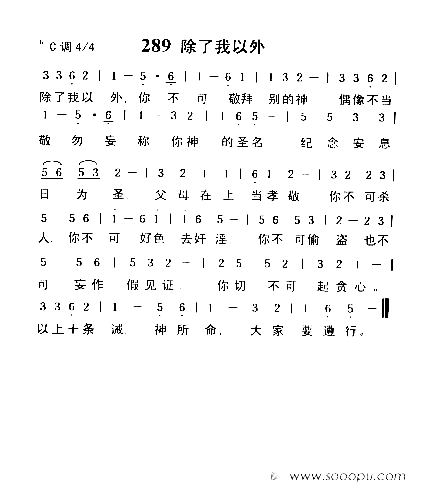 ᵇC调4/4 289 除了我以外
3 3 6 2 | 1 — 5 · 6 | 1 — 6 1 | 1 3 2 — | 3 3 6 2 |
除了我以 外，你 不 可 敬拜 别的神 偶像不当
1 — 5 · 6 | 1 — 3 2 | 1 6 5 — | 5 5 3 3 |
敬 勿 妄 称 你神 的圣名 纪念安息
5 6 5 3 | 2 — 3 2 | 1 — 2 1 | 6 1 2 — | 2 3 2 1 |
日 为 圣， 父母 在 上 当孝敬 你不可杀
5 5 6 | 1 — 6 1 | 1 6 5 — | 5 5 6 5 3 | 2 — 2 3 |
人，你不 可 好色 去奸淫 你不可偷 盗也不
5 5 6 | 5 3 2 — | 2 5 5 2 | 3 2 1 — |
可 妄作 假见证， 你切 不可 起贪心。
3 3 6 2 | 1 — 5 6 | 1 — 3 2 | 1 6 5 — ‖
以上十条 诫， 神所 命， 大家 要遵行。
www.sooopu.com